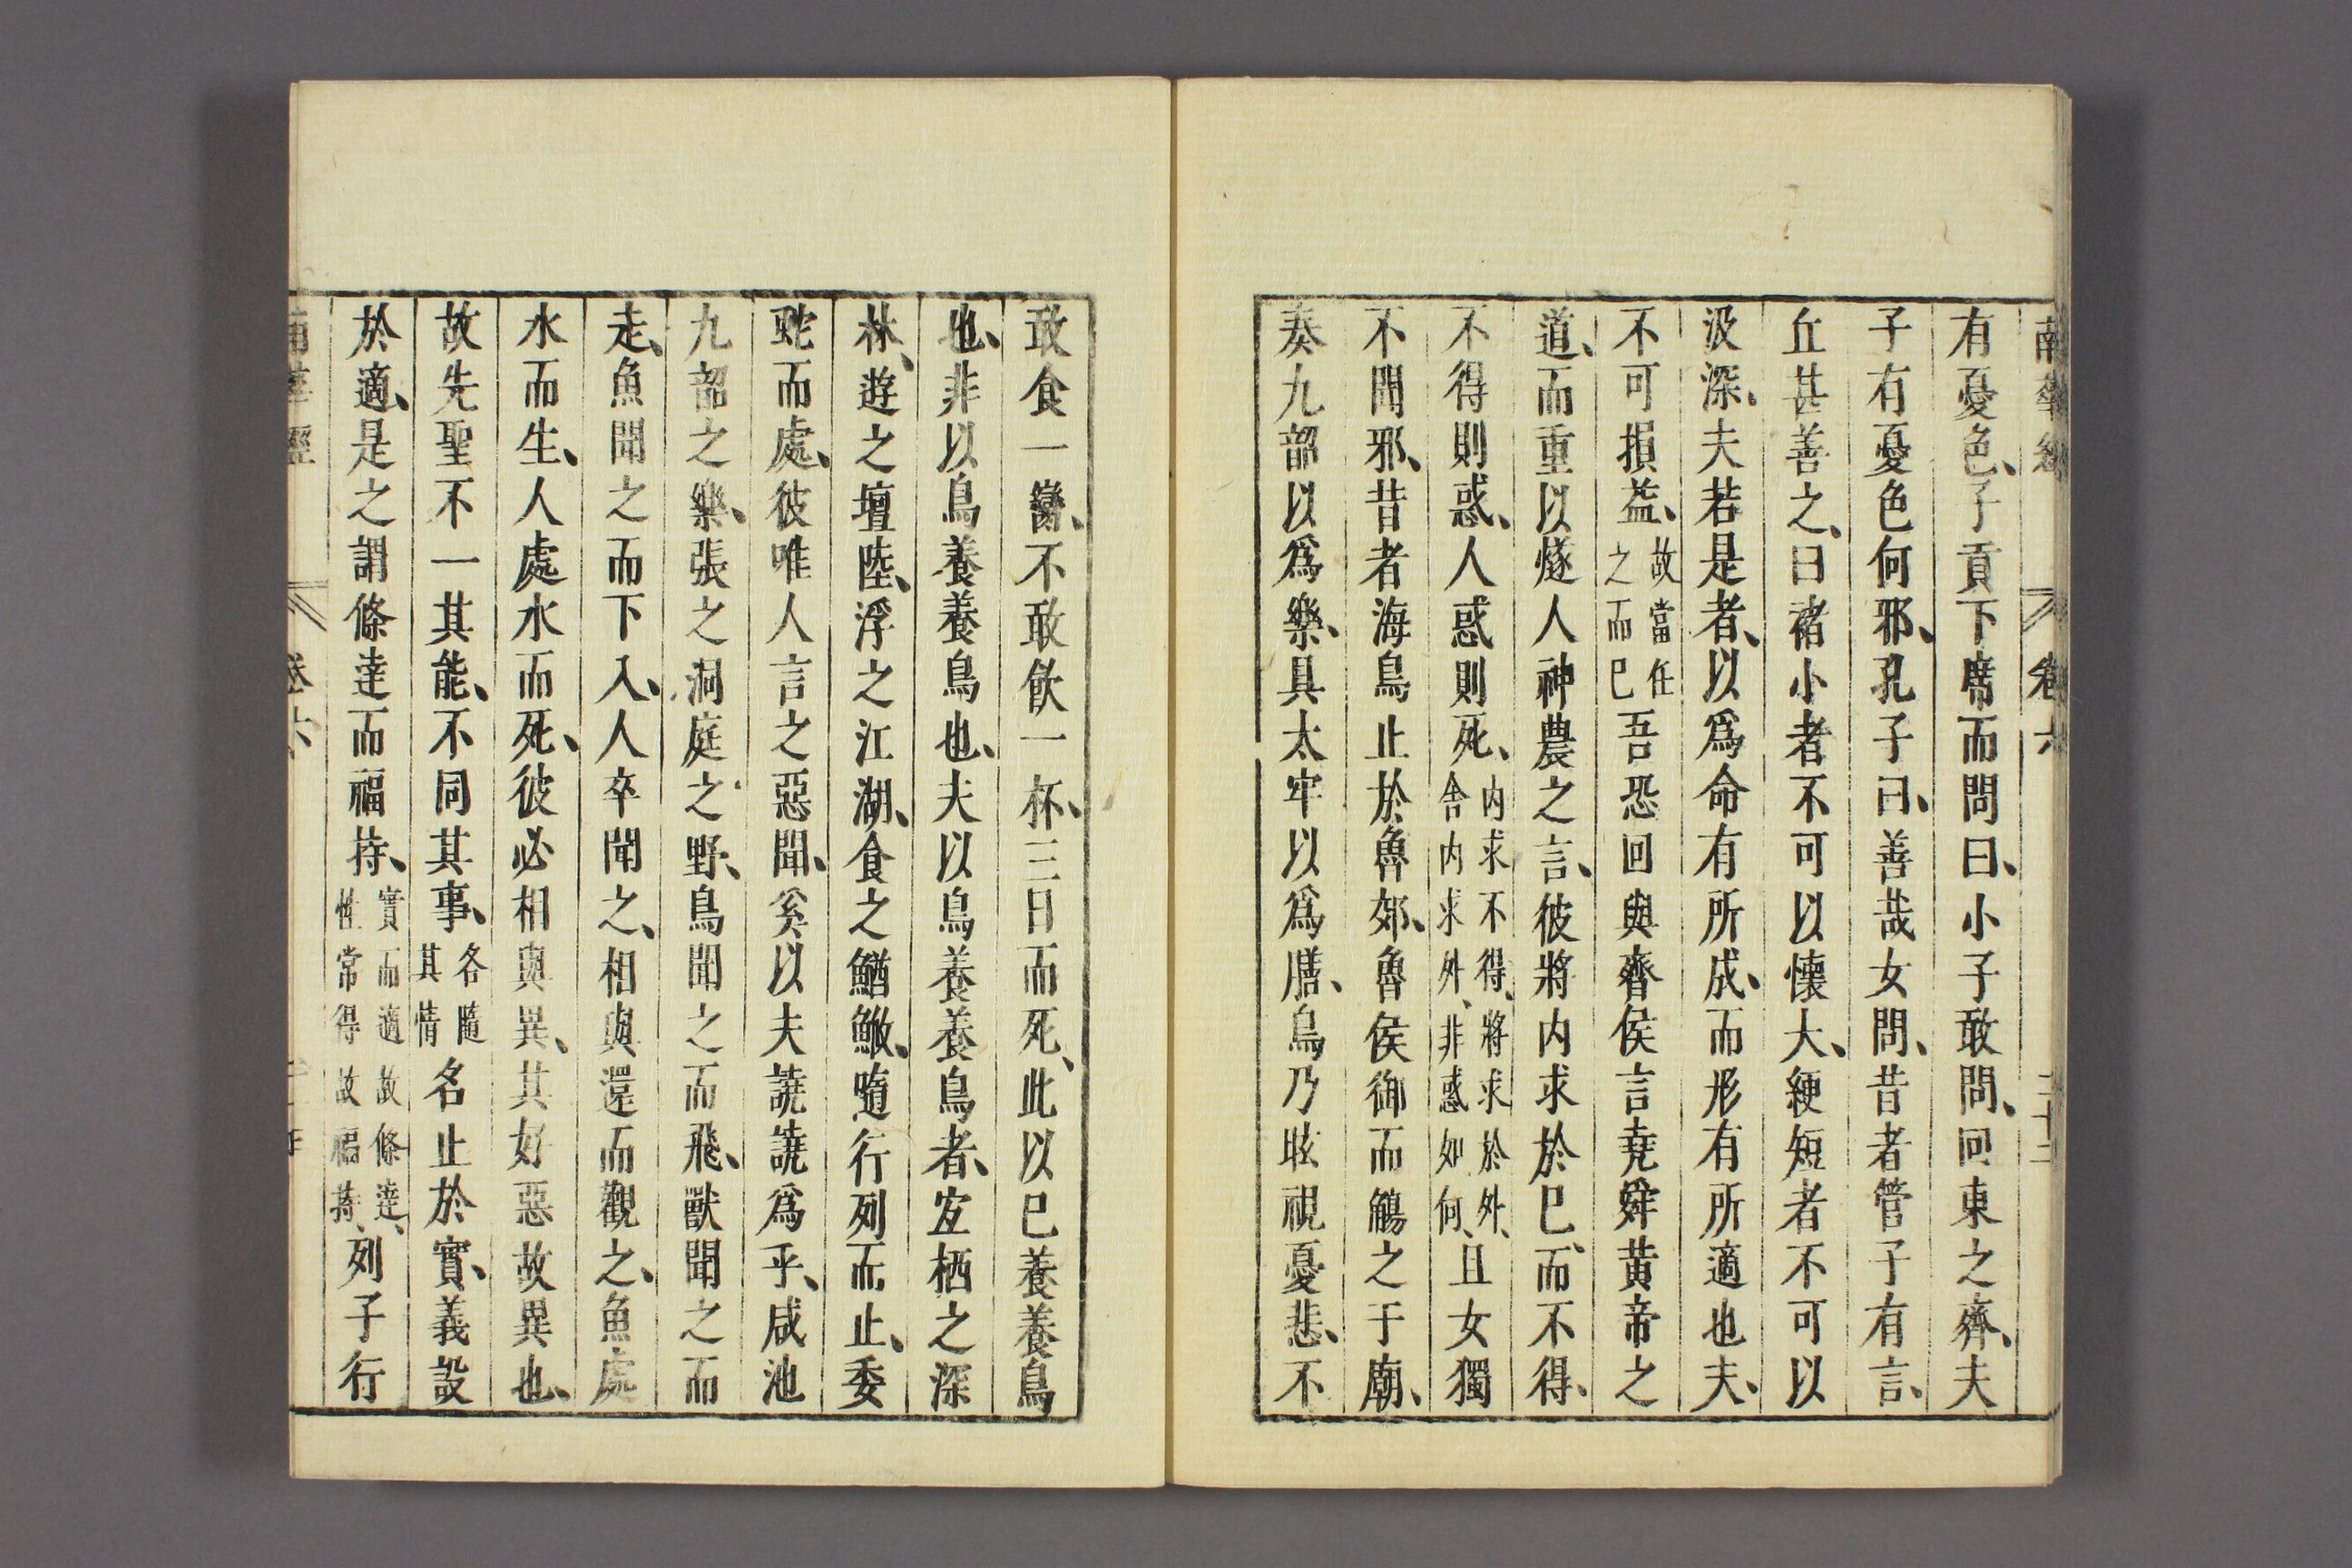 南華經 卷六 二十二
有憂色、子貢下席而問曰、小子敢問、回東之齊、夫
子有憂色何邪、孔子曰、善哉女問、昔者管子有言、
丘甚善之、曰褚小者不可以懷大、綆短者不可以
汲深、夫若是者、以爲命有所成、而形有所適也夫、
不可損益、故當任之而已吾恐回與齊侯言堯舜黃帝之
道、而重以燧人神農之言、彼將内求於已、而不得、
不得則惑、人惑則死、内求不得、將求於外、舍内求外、非惑如何、且女獨
不聞邪、昔者海鳥止於魯郊、魯侯御而觴之于廟、
奏九韶以爲樂、具太牢以爲膳、鳥乃眩視憂悲、不
敢食一臠、不敢飲一杯、三日而死、此以已養養鳥
也、非以鳥養養鳥也、夫以鳥養養鳥者、宜栖之深
林、遊之壇陸、浮之江湖、食之鰌䱔、隨行列而止、委
虵而處、彼唯人言之惡聞、奚以夫譊譊爲乎、咸池
九韶之樂、張之洞庭之野、鳥聞之而飛、獸聞之而
走、魚聞之而下入、人卒聞之、相與還而觀之、魚處
水而生、人處水而死、彼必相與異、其好惡故異也、
故先聖不一其能、不同其事、各隨其情名止於實、義設
於適、是之謂條達而福持、實而適故條達、性常得故福持、列子行
南華經 卷六